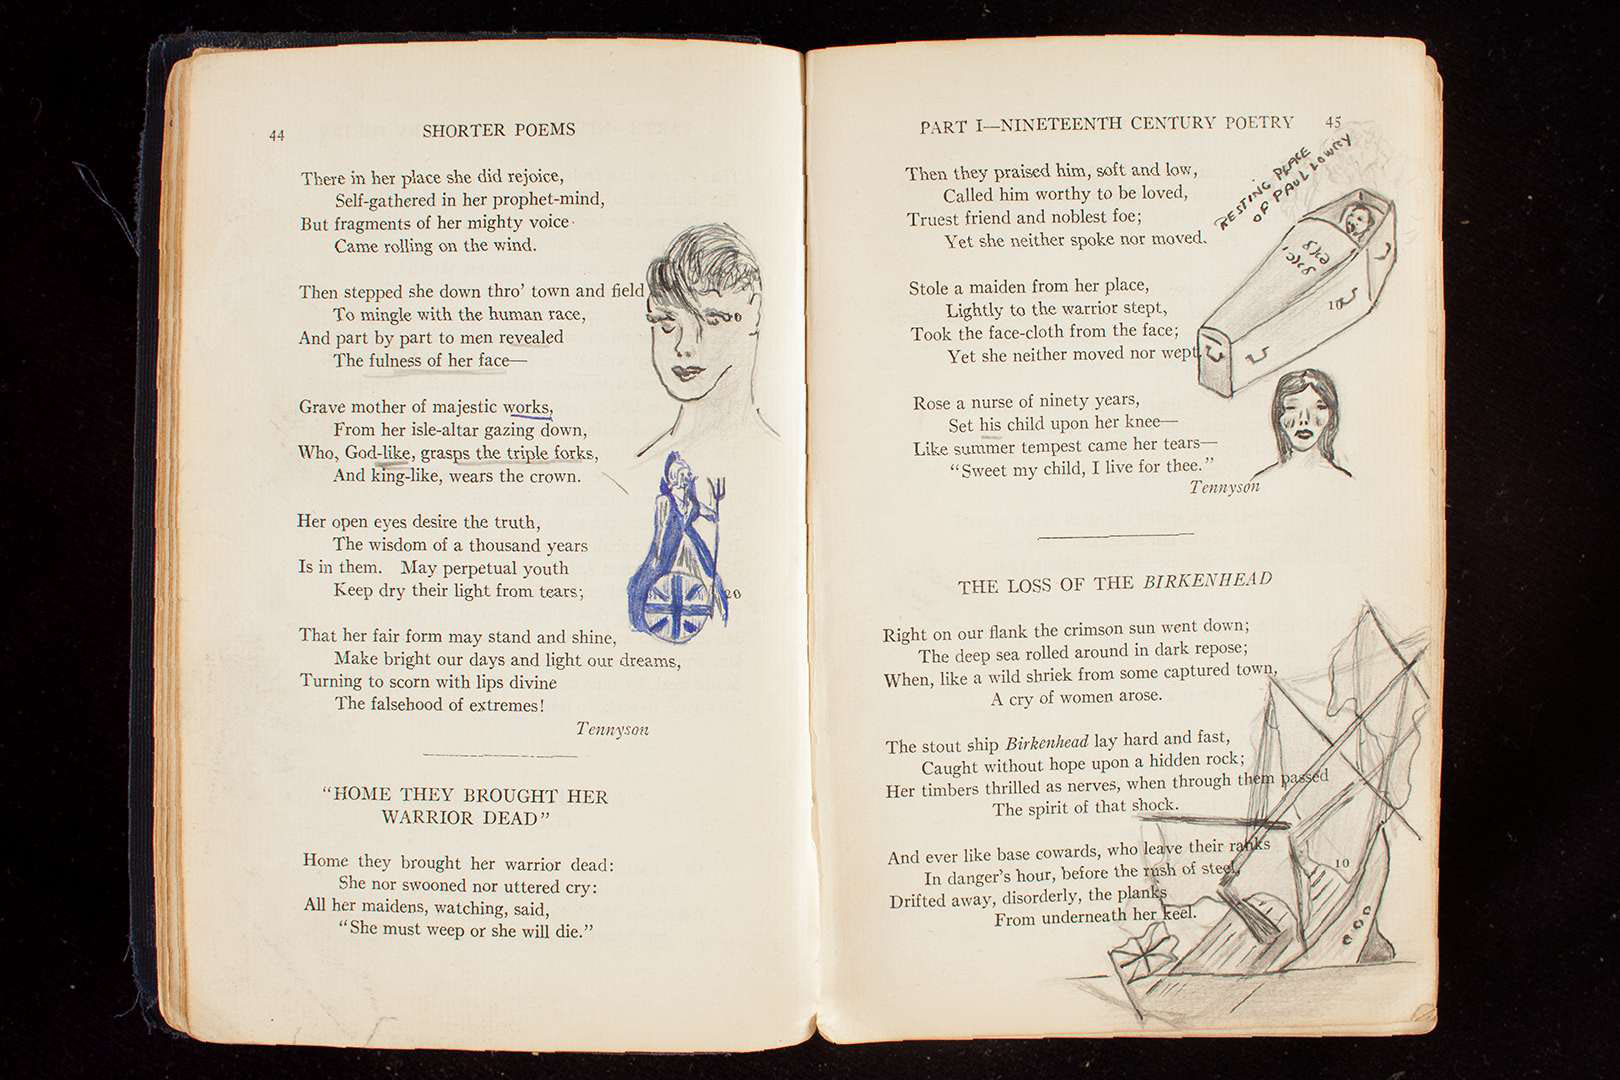 44
SHORTER POEMS
There in her place she did rejoice,
Self-gathered in her prophet-mind,
But fragments of her mighty voice
Came rolling on the wind.
Then stepped she down thro' town and field
To mingle with the human race,
And part by part to men revealed
The fulness of her face—
Grave mother of majestic works,
From her isle-altar gazing down,
Who, God-like, grasps the triple forks,
And king-like, wears the crown.
Her open eyes desire the truth,
The wisdom of a thousand years
Is in them. May perpetual youth
Keep dry their light from tears;
20
That her fair form may stand and shine,
Make bright our days and light our dreams,
Turning to scorn with lips divine
The falsehood of extremes!
Tennyson
"HOME THEY BROUGHT HER
WARRIOR DEAD"
Home they brought her warrior dead:
She nor swooned nor uttered cry:
All her maidens, watching, said,
"She must weep or she will die."
PART I—NINETEENTH CENTURY POETRY
45
Then they praised him, soft and low,
Called him worthy to be loved,
Truest friend and noblest foe;
Yet she neither spoke nor moved.
RESTING PLACE
OF PAUL LOWRY
Stole a maiden from her place,
Lightly to the warrior stept,
10
Took the face-cloth from the face;
Yet she neither moved nor wept.
Rose a nurse of ninety years,
Set his child upon her knee—
Like summer tempest came her tears—
"Sweet my child, I live for thee."
Tennyson
THE LOSS OF THE BIRKENHEAD
Right on our flank the crimson sun went down;
The deep sea rolled around in dark repose;
When, like a wild shriek from some captured town,
A cry of women arose.
The stout ship Birkenhead lay hard and fast,
Caught without hope upon a hidden rock;
Her timbers thrilled as nerves, when through them passed
The spirit of that shock.
And ever like base cowards, who leave their ranks
In danger's hour, before the rush of steel,
10
Drifted away, disorderly, the planks
From underneath her keel.